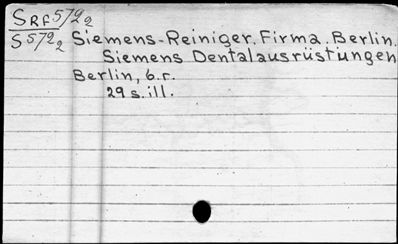 SRF 5792₂
S 572₂ Siemens-Reiniger. Firma. Berlin.
Siemens Dentalausrüstungen
Berlin, b.r.
29 s. ill.